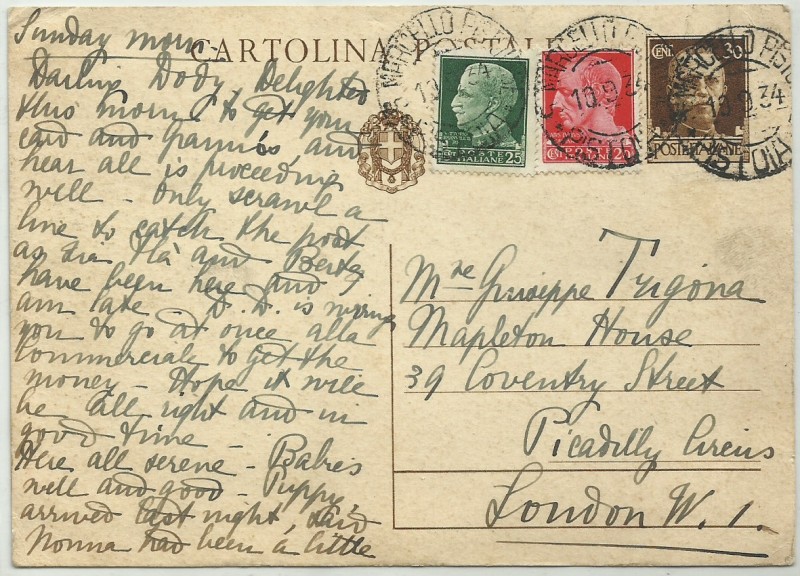 Sunday morn -
CARTOLINA POSTALE
Darling Dody, Delighted
this morn. to get your
card and Grannie's and
hear all is proceeding
well - Only scrawl a
line to catch the post
as Zia and Berta
have been here and I
am late - D.D. is wiring
you to go at once alla
Commerciale to get the
money - Hope it will
be all right and in
good time -
Here all serene - Babies
well and good - Puppy
arrived last night, said
Nonna had been a little
POSTE ITALIANE 25
CENT. 20
CENT. 30
POSTE ITALIANE
S. MARCELLO PISTOIESE
10.9.34
PISTOIA
Mre Giuseppe Trigona
Mapleton House
39 Coventry Street
Picadilly Circus
London W. 1.